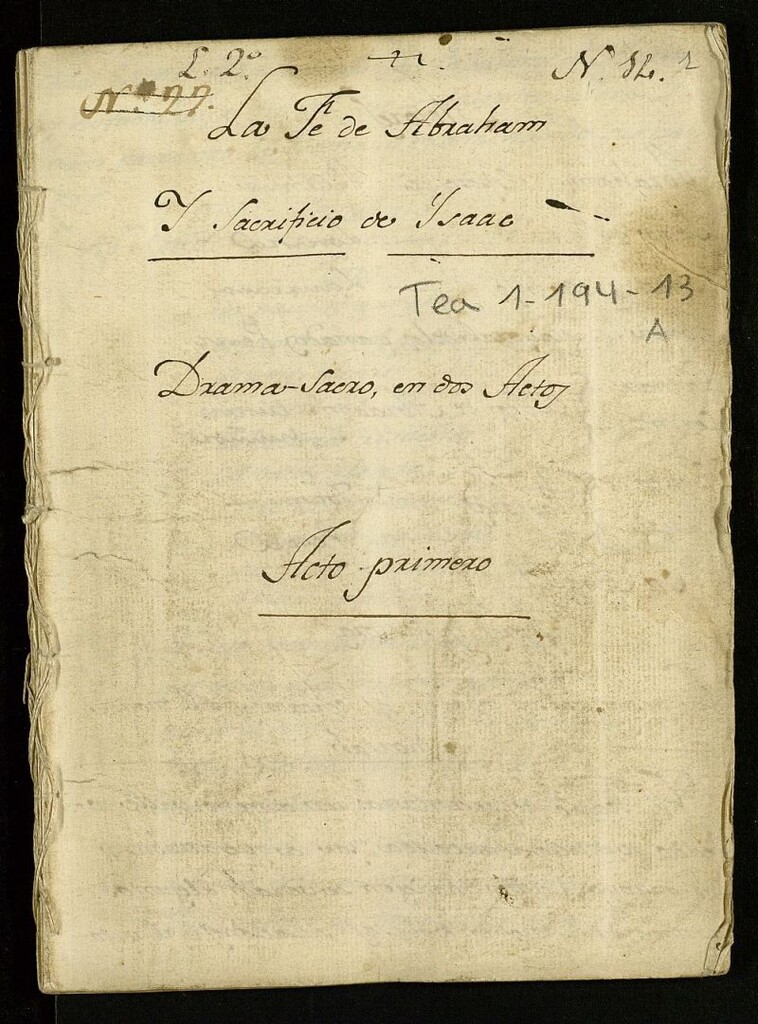 L. 2º N. 14. 1
Nº 27.
La Fe de Abraham
Y Sacrificio de Ysaac
Tea 1-194-13
A
Drama-Sacro, en dos Actos
Acto primero